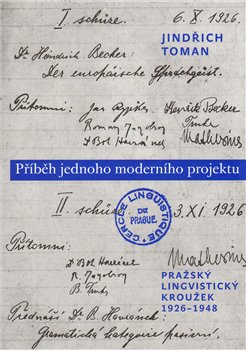 I schůze. 6. X. 1926.
JINDŘICH
TOMAN
Dr. Heinrich Becker:
Der europäische Sprachgeist.
Přítomni: Jan Rypka Henrik Becker
Roman Jakobson Trnka
Dr Boh Havránek Mathesius
Příběh jednoho moderního projektu
II. schůze 3. XI. 1926
CERCLE LINGUISTIQUE
DE
PRAGUE
Přítomni: Mathesius
Dr Boh Havránek
R. Jakobson
B. Trnka
PRAŽSKÝ
LINGVISTICKÝ
KROUŽEK
1926–1948
Přednáší Dr. B. Havránek:
Gramatická kategorie pasivní.